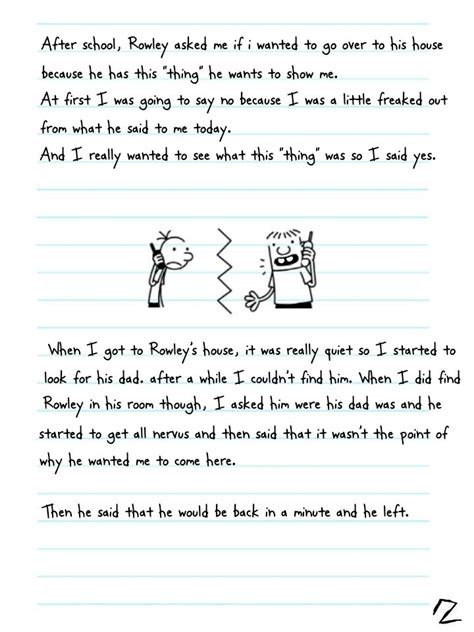 After school, Rowley asked me if i wanted to go over to his house
because he has this "thing" he wants to show me.
At first I was going to say no because I was a little freaked out
from what he said to me today.
And I really wanted to see what this "thing" was so I said yes.
When I got to Rowley's house, it was really quiet so I started to
look for his dad. after a while I couldn't find him. When I did find
Rowley in his room though, I asked him were his dad was and he
started to get all nervus and then said that it wasn't the point of
why he wanted me to come here.
Then he said that he would be back in a minute and he left.
12